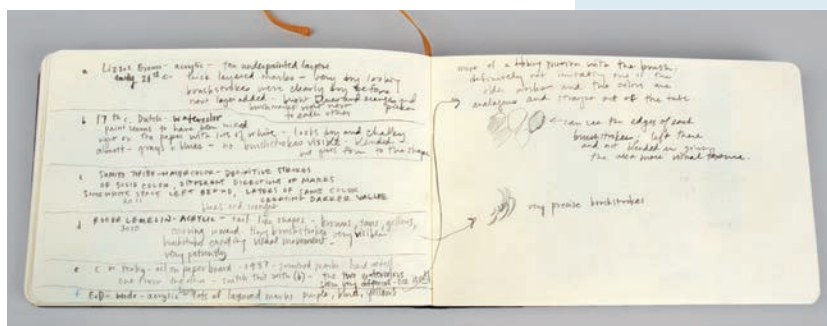 a Lizzie Brown - acrylic - ten underpainted layers
early 21st c - thick layered marks - very dry looking
brushstrokes were clearly dry before
next layer added - bright blues and oranges and
brushmarks went next
to each other
b 17th c. Dutch - watercolor
paint seems to have been mixed
right on the paper with lots of white - looks dry and chalky
almost - grays + blues - no brushstrokes visible - blended
form to the shapes
c - WATERCOLOR - DEFINITIVE STROKES
OF SOLID COLOR, DIFFERENT DIRECTION OF MARKS
SOME WHITE SPACE LEFT BEHIND, LAYERS OF SAME COLOR
CREATING DARKER VALUE
blues and oranges
d ROGER - ACRYLIC - tail like shapes - browns, tans, yellows,
2010 curving inward tiny brushstrokes very visible
brushstroke creating visual movement -
very patiently
e - oil on paper board - 1937 -
one from the other - match this with (b) - the two watercolors
seem very different
f - acrylic - lots of layered marks purple, blues, yellows
more of a motion with the brush,
definitely not imitating one of the
older works and the colors are
analogous and straight out of the tube
can see the edges of each
brushstroke, left there
and not blended in giving
the area more visual texture.
very precise brushstrokes